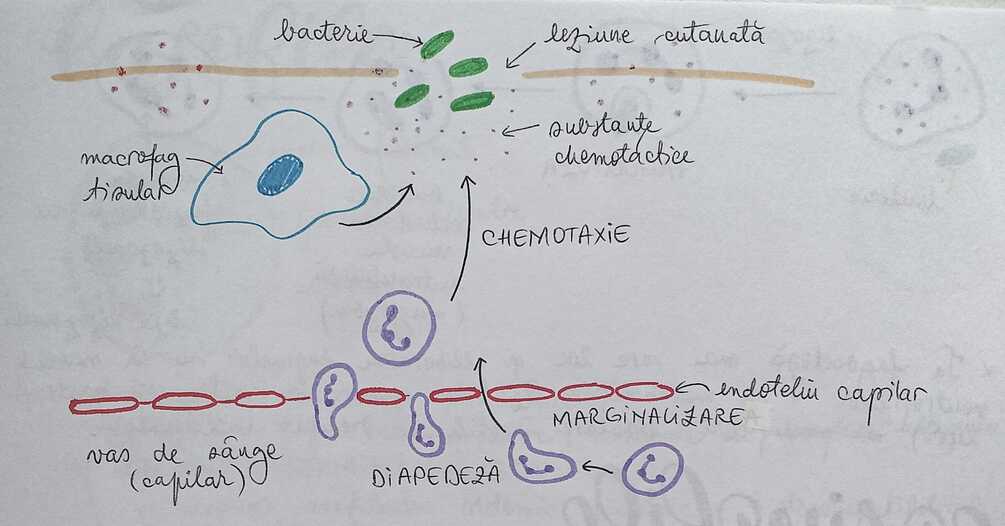 bacterie
leziune cutanată
substanțe
chemotactice
macrofag
tisular
CHEMOTAXIE
endoteliu capilar
MARGINALIZARE
vas de sânge
(capilar)
DIAPEDEZĂ